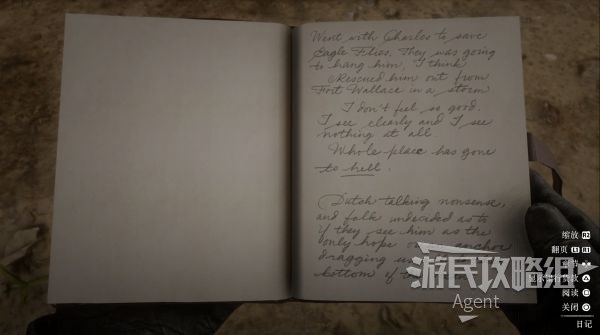 Went with Charles to save
Eagle Flies. They was going
to hang him, I think
Rescued him out from
Fort Wallace in a storm
I don't feel so good.
I see clearly and I see
nothing at all
Whole place has gone
to hell.
Dutch talking nonsense,
and folk undecided as to
if they see him as the
only hope or anchor
dragging us
bottom of
游民攻略组
Agent
缩放 R2
翻页 L1 R1
阅读
关闭
日记